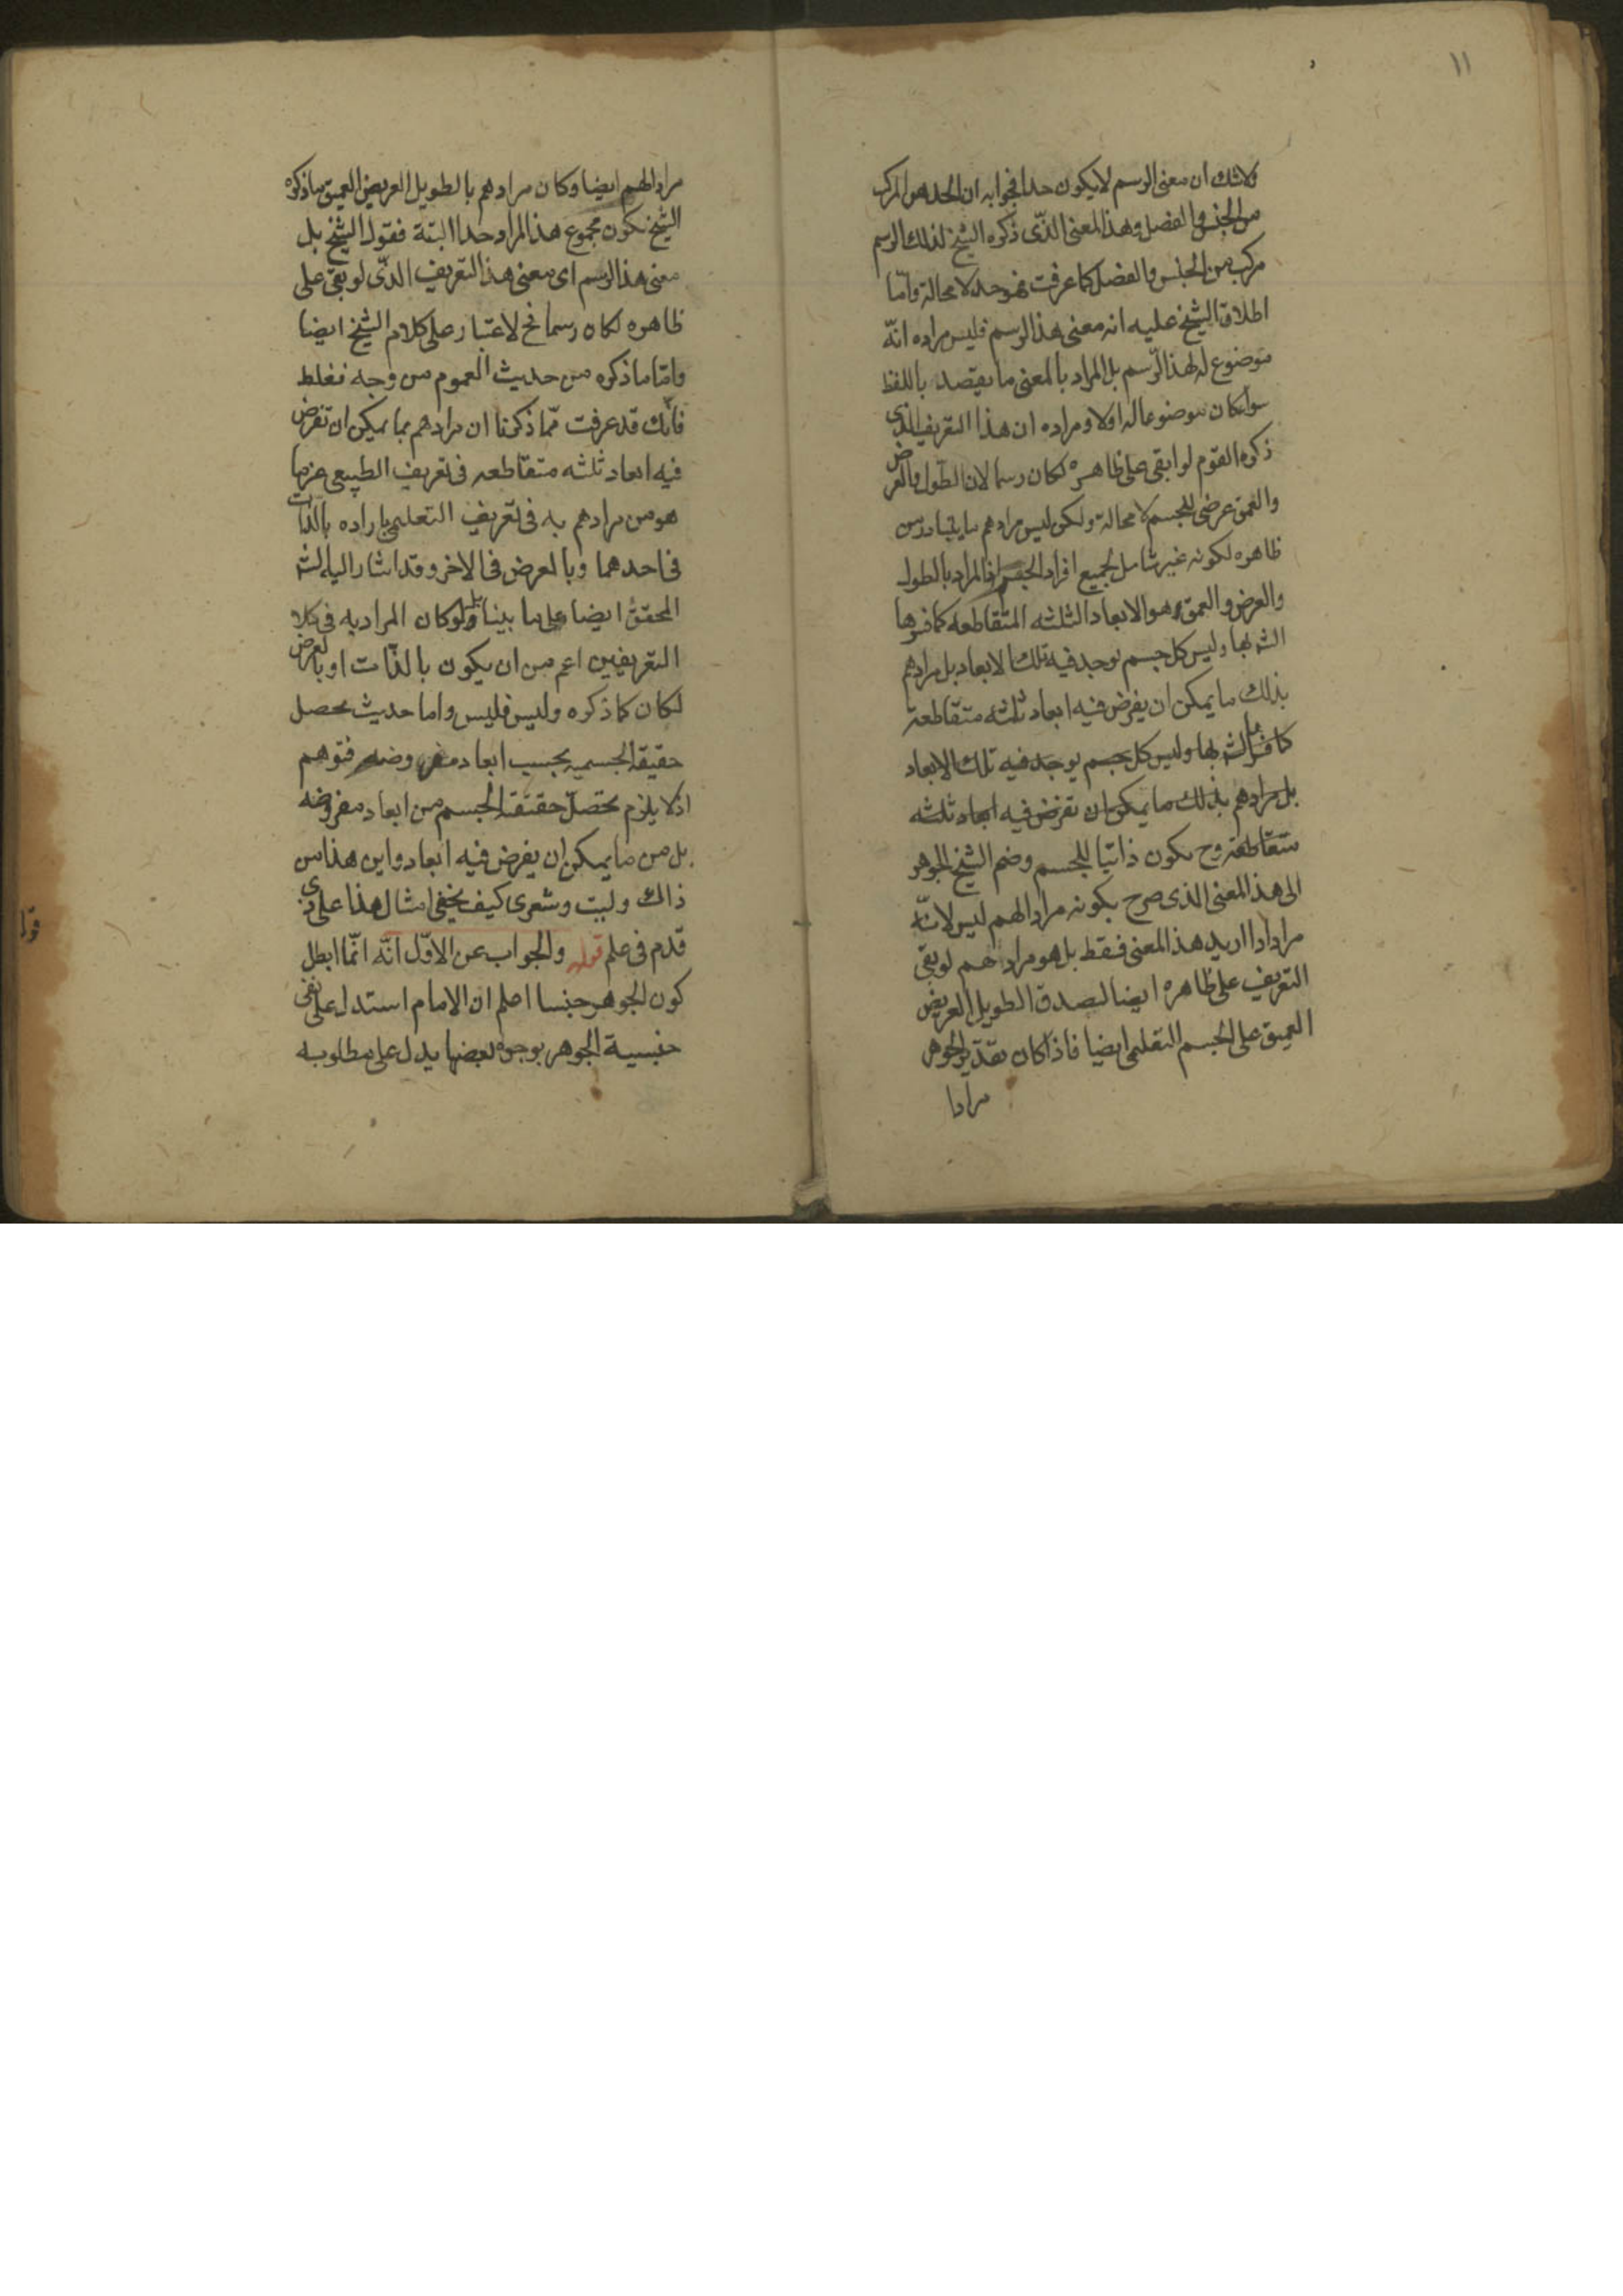 ١١
ولا شك ان معنى الرسم لا يكون حدا فجوابه ان الحد هو المركب
من الجنس والفصل وهذا المعنى الذى ذكره الشيخ لذلك الرسم
مركب من الجنس والفصل كما عرفت فهو حد لا محالة واما
اطلاق الشيخ عليه انه معنى هذا الرسم فليس مراده انه
موضوع له لهذا الرسم بل المراد بالمعنى ما يقصد باللفظ
سواء كان موضوعا له اولا ومراده ان هذا التعريف الذى
ذكره القوم لو ابقى على ظاهره لكان رسما لان الطول والعرض
والعمق عرضى للجسم لا محالة ولكن ليس مرادهم ما يتبادر من
ظاهره لكونه غير شامل لجميع افراد الجسم اذ المراد بالطول
والعرض والعمق هو الابعاد الثلثه المتقاطعه كما فسرها
الشه بها وليس كل جسم يوجد فيه تلك الابعاد بل مرادهم
بذلك ما يمكن ان يفرض فيه ابعاد ثلثه متقاطعة
كما فسر الشه بها وليس كل جسم يوجد فيه تلك الابعاد
بل مرادهم بذلك ما يمكن ان تفرض فيه ابعاد ثلثه
متقاطعة وح يكون ذاتيا للجسم وضم الشيخ الجوهر
الى هذا المعنى الذى صرح بكونه مرادا لهم ليس لانه
مرادا اريد هذا المعنى فقط بل هو مرادهم لو بقى
التعريف على ظاهره ايضا لصدق الطويل العريض
العميق على الجسم التعليمى ايضا فاذا كان تقدير الجوهر
مرادا
مرادا لهم ايضا وكان مرادهم بالطويل العريض العميق ما ذكره
الشيخ يكون مجموع هذا المراد حدا البتة فقول الشيخ بل
معنى هذا الرسم اى معنى هذا التعريف الذى لو بقى على
ظاهره لكان رسما فح لا غبار على كلام الشيخ ايضا
واما ما ذكره من حديث العموم من وجه فغلط
فانك قد عرفت مما ذكرنا ان مرادهم بما يمكن ان تفرض
فيه ابعاد ثلثه متقاطعه فى تعريف الطبيعى غير ما
هو من مرادهم به فى تعريف التعليمى بارادة بالذات
فى احدهما وبالعرض فى الاخر وقد اشار اليه الشه
المحقق ايضا على ما بينا بل ولو كان المراد به فى كلا
التعريفين اعم من ان يكون بالذات او بالعرض
لكان كما ذكره وليس فليس واما حديث تحصل
حقيقة الجسميه بحسب ابعاد مفروضه فتوهم
اذ لا يلزم تحصل حقيقة الجسم من ابعاد مفروضه
بل من ما يمكن ان يفرض فيه ابعاد واين هذا من
ذاك وليت وشعرى كيف يخفى امثال هذا على ذى
قدم فى علم قوله والجواب عن الاول انه انما ابطل
كون الجوهر جنسا اعلم ان الامام استدل على نفى
جنسية الجوهر بوجوه بعضها يدل على مطلوبه